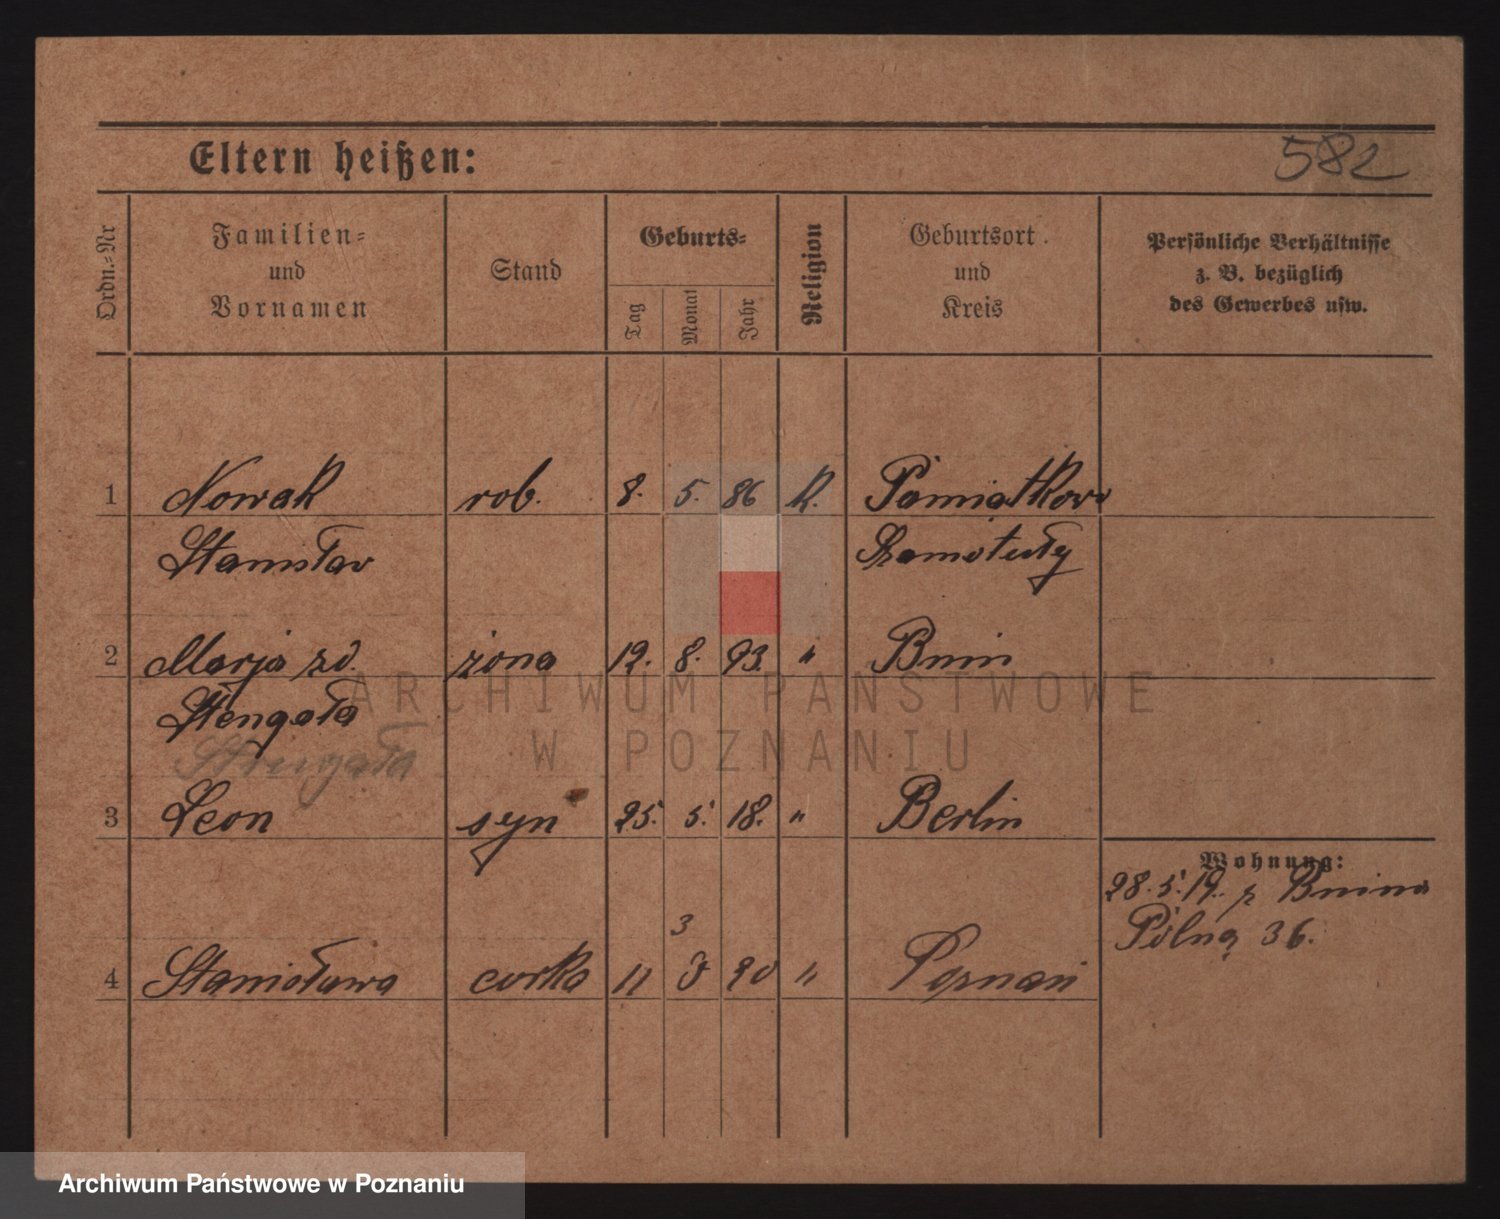 Eltern heißen:
582
Ordn.-Nr
Familien-
und
Vornamen
Stand
Geburts-
Tag
Monat
Jahr
Religion
Geburtsort
und
Kreis
Persönliche Verhältnisse
z. B. bezüglich
des Gewerbes usw.
1 Nowak rob. 8. 5. 86 K. Pamiątkowo
Stanisław Szamotuły
2 Marja zd. żona 12. 8. 93. " Bnin
Stengała
3 Leon syn 25. 5. 18. " Berlin
Wohnung:
28.5.19. z Bnina
Pólna 36.
3
4 Stanisława corka 11 20 " Poznań
ARCHIWUM PAŃSTWOWE
W POZNANIU
Archiwum Państwowe w Poznaniu